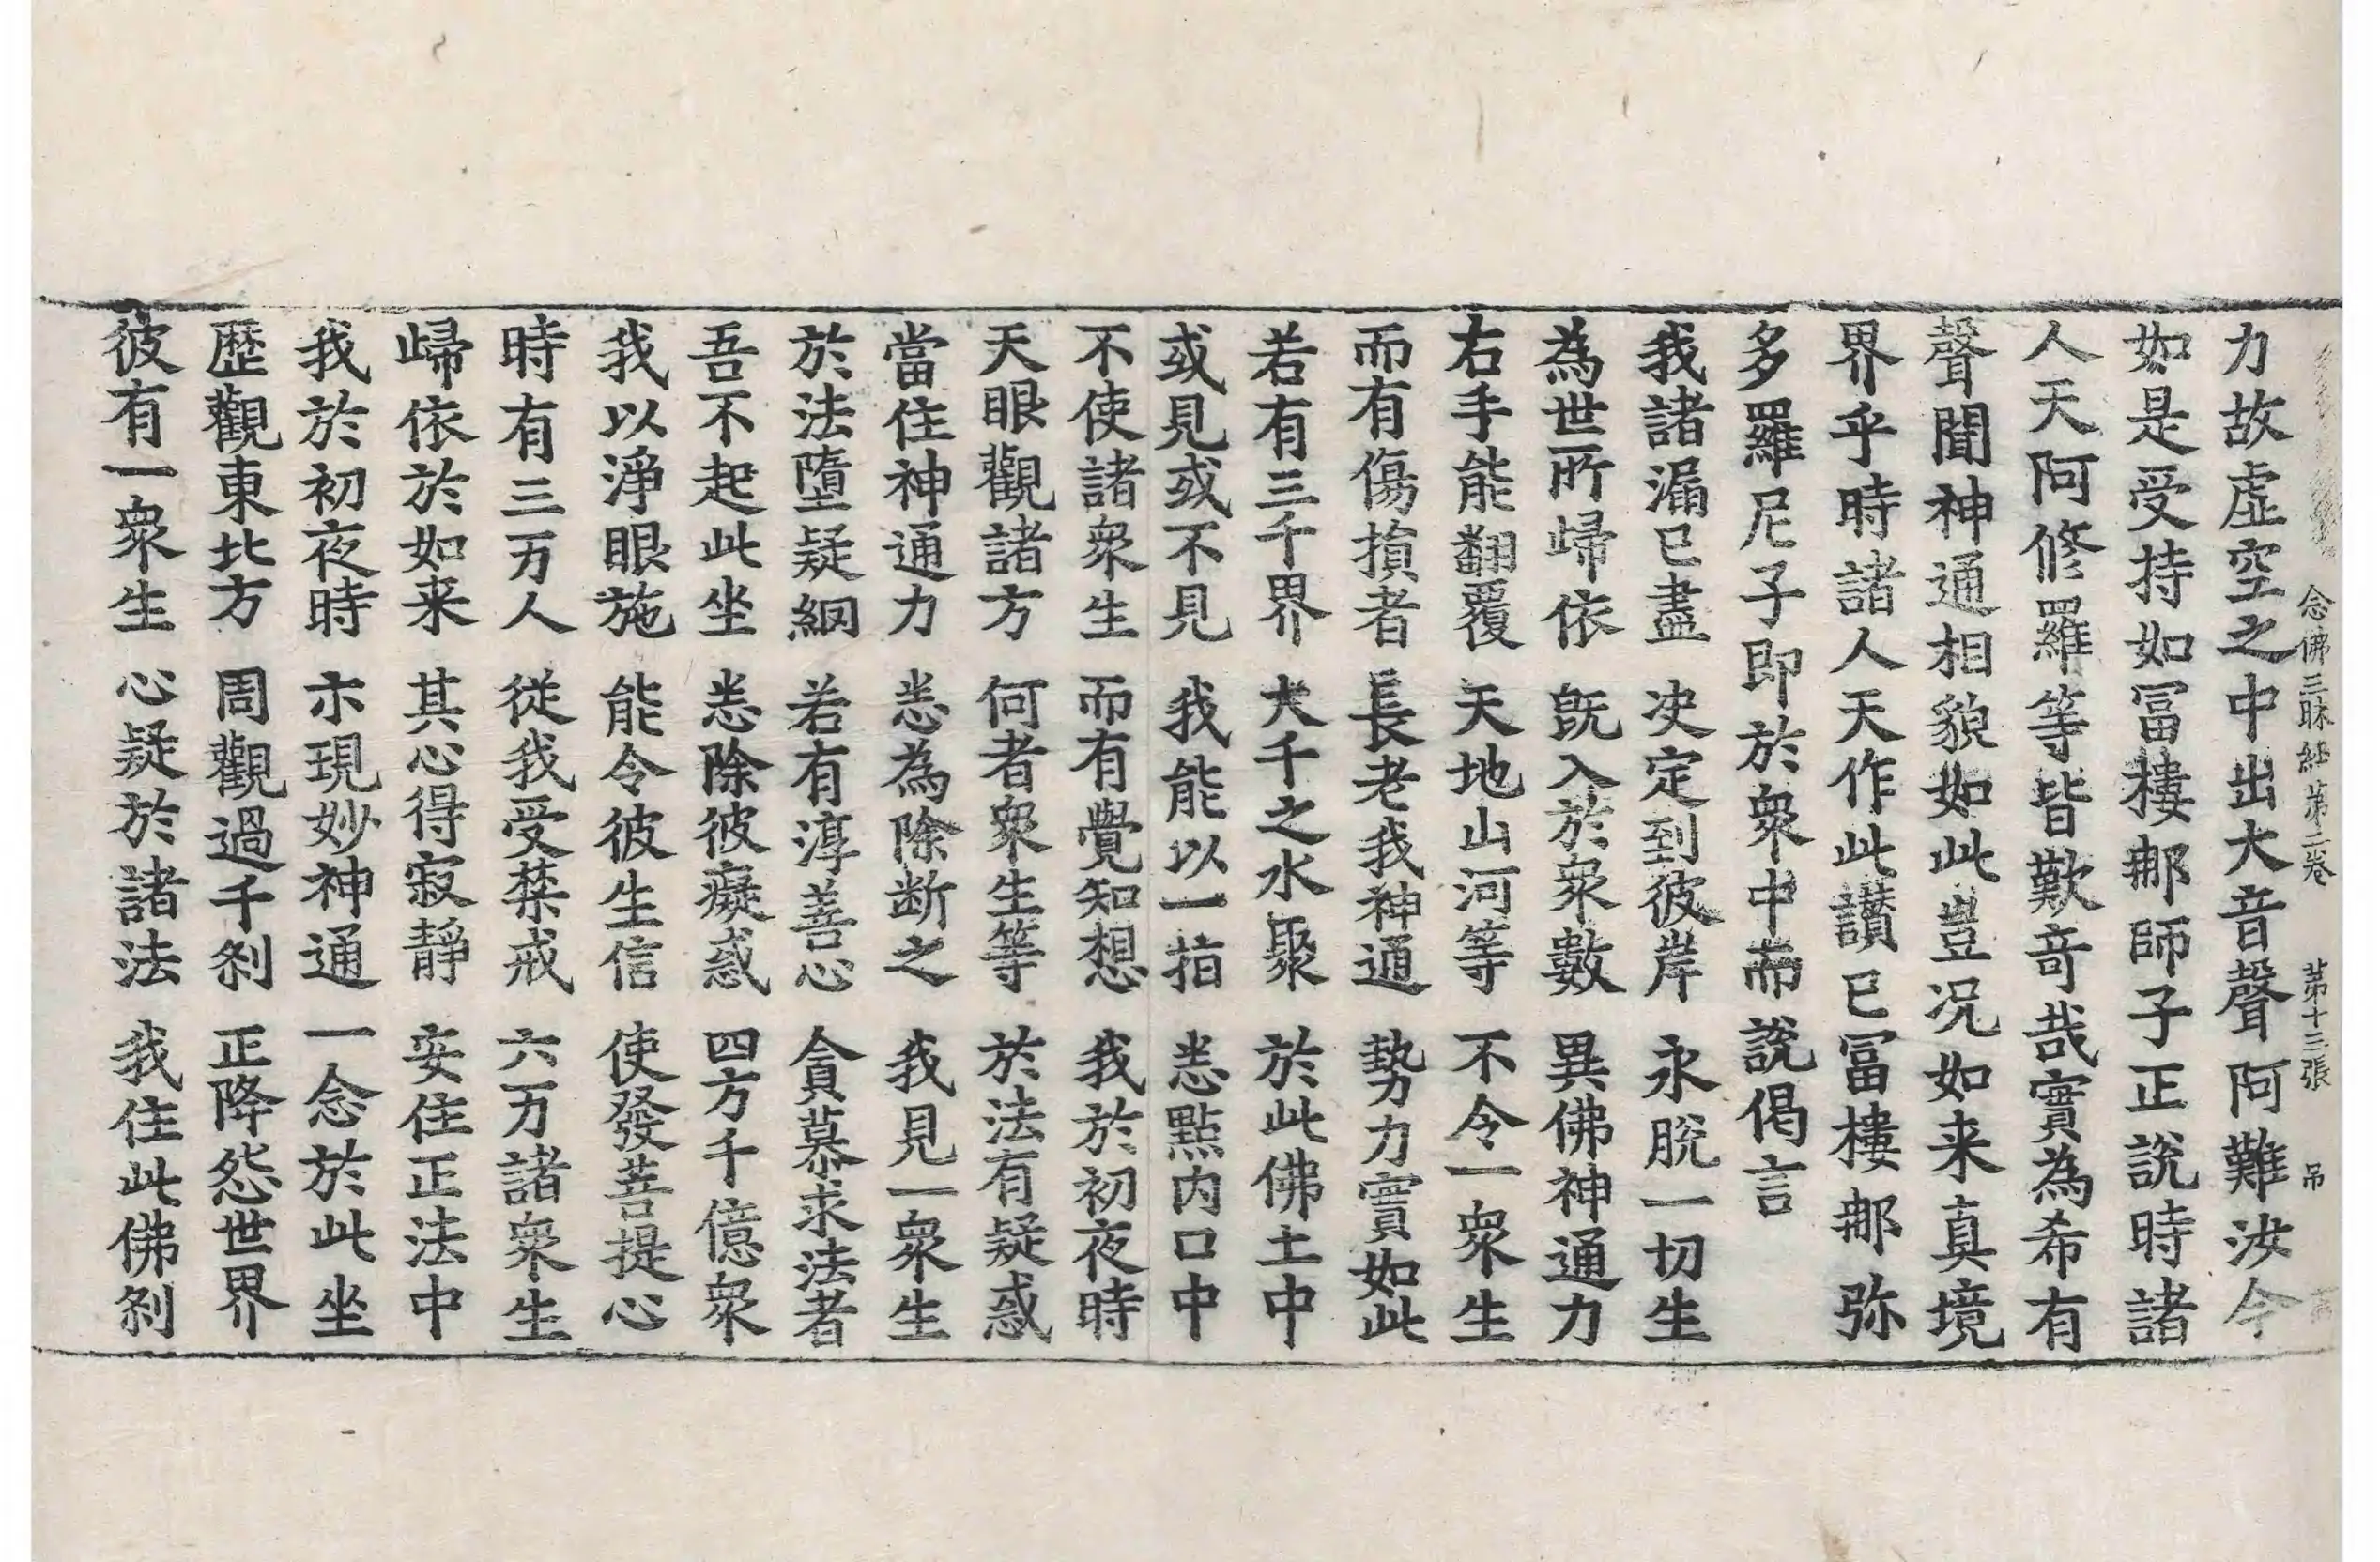 念佛三昧經第二卷　第十三張　吊
力故虛空之中出大音聲阿難汝今
如是受持如冨樓那師子正說時諸
人天阿修羅等皆歎奇哉實為希有
聲聞神通相貌如此豈況如来真境
界乎時諸人天作此讃已冨樓那弥
多羅尼子即於衆中而說偈言
我諸漏已盡　决定到彼岸　永脫一切生
為世所歸依　既入於衆數　異佛神通力
右手能翻覆　天地山河等　不令一衆生
而有傷損者　長老我神通　勢力實如此
若有三千界　大千之水聚　於此佛土中
或見或不見　我能以一指　悉點内口中
不使諸衆生　而有覺知想　我於初夜時
天眼觀諸方　何者衆生等　於法有疑惑
當住神通力　悉為除断之　我見一衆生
於法墮疑網　若有淳善心　貪慕求法者
吾不起此坐　悉除彼癡惑　四方千億衆
我以淨眼施　能令彼生信　使發菩提心
時有三万人　從我受禁戒　六万諸衆生
歸依於如来　其心得寂靜　安住正法中
我於初夜時　示現妙神通　一念於此坐
歷觀東北方　周觀過千刹　正降怨世界
彼有一衆生　心疑於諸法　我住此佛刹